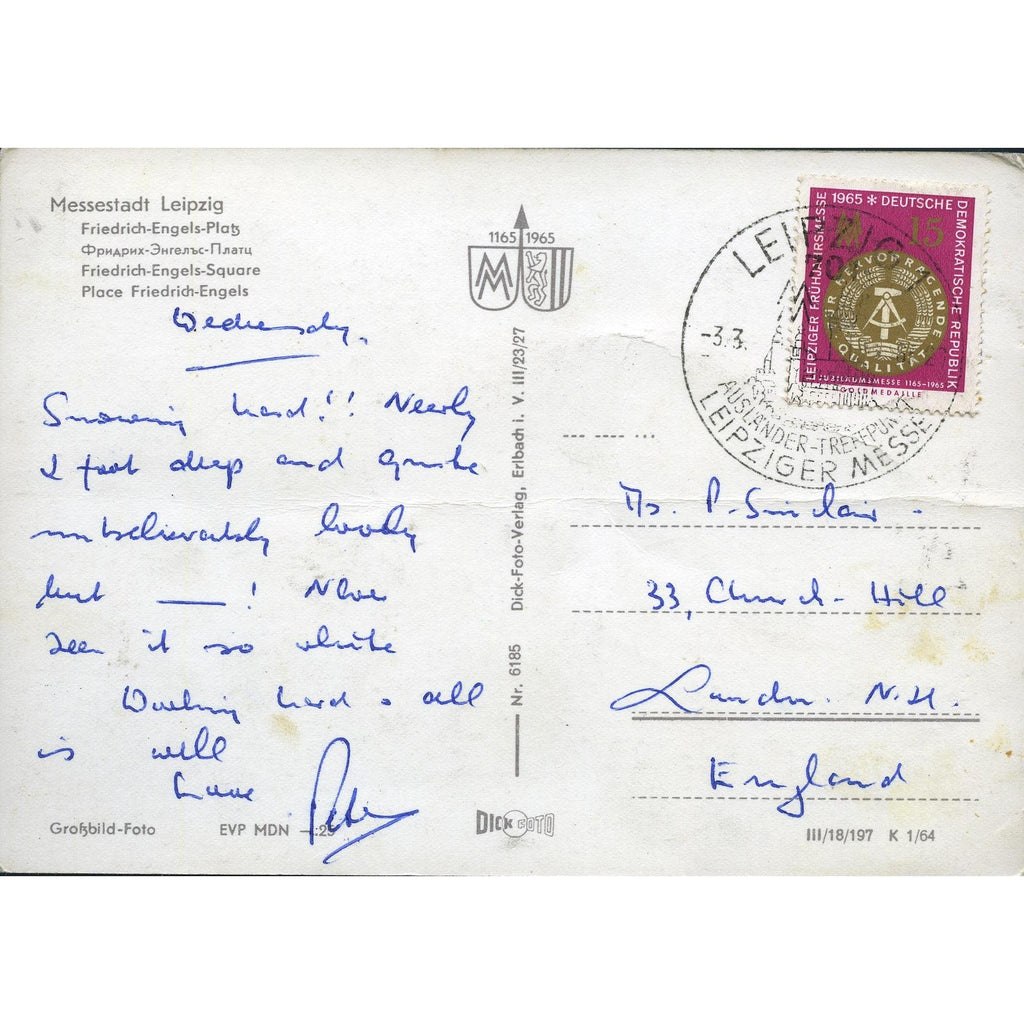 Messestadt Leipzig
Friedrich-Engels-Platz
Фридрих-Энгельс-Платц
Friedrich-Engels-Square
Place Friedrich-Engels
Wednesday.
Snowing hard!! Nearly
2 foot deep and quite
unbelievably lovely
but ! Never
seen it so white
Working hard & all
is well
Love Peter
Großbild-Foto EVP MDN -.25
1165 1965
MM
Nr. 6185 Dick-Foto-Verlag, Erlbach i. V. III/23/27
DICK FOTO
LEIPZIGER FRÜHJAHRSMESSE 1965 * DEUTSCHE DEMOKRATISCHE REPUBLIK
MM 15
FÜR HERVORRAGENDE QUALITÄT
JUBILÄUMSMESSE 1165-1965
GOLDMEDAILLE
LEIPZIG
-3.3.
AUSLÄNDER-TREFFPUNKT
LEIPZIGER MESSE
P. Sinclair.
33, Church Hill
London. N.21.
England
III/18/197 K 1/64